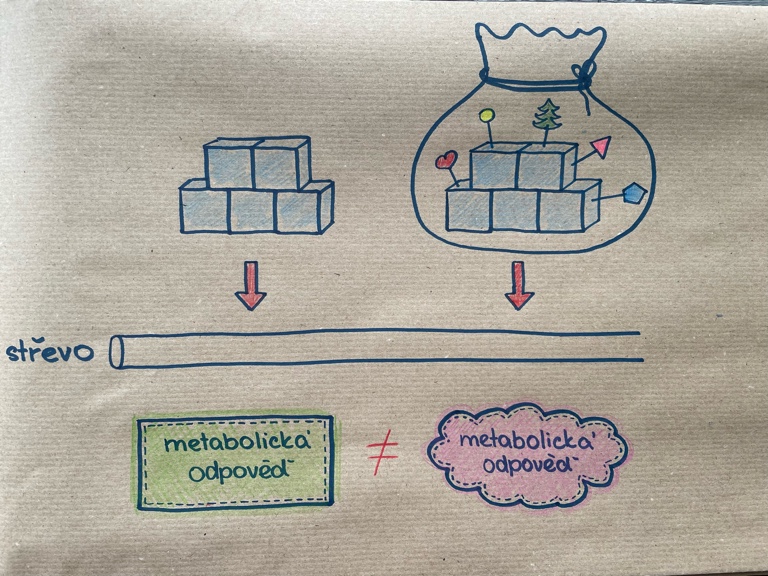 střevo
metabolická
odpověď
≠
metabolická
odpověď